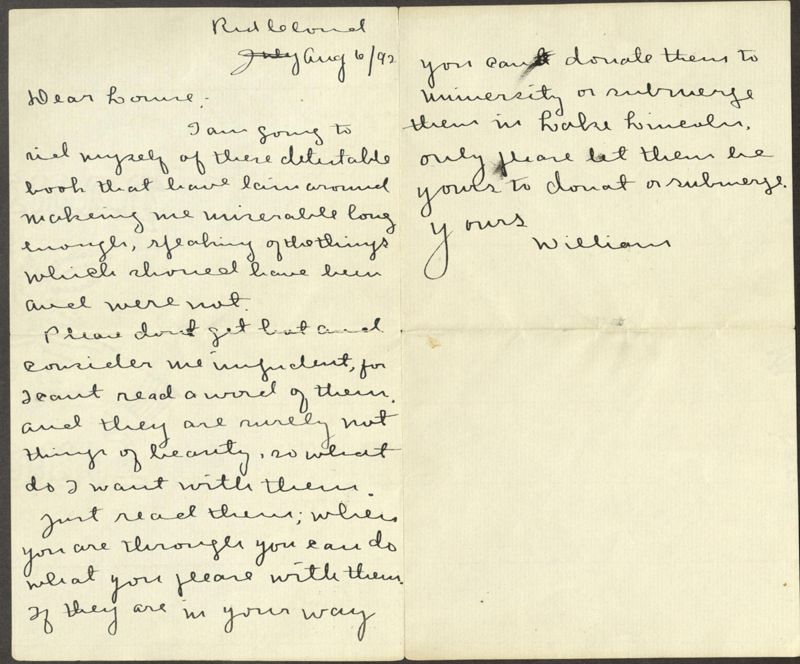 Red Cloud
July Aug 6/92
Dear Louise;
I am going to
rid myself of these detestable
book that have lain around
makeing me miserable long
enough, speaking of the things
which should have been
and were not.
Please don't get hot and
consider me impudent, for
I cant read a word of them.
and they are surely not
things of beauty, so what
do I want with them.
Just read them; when
you are through you can do
what you please with them.
If they are in your way
you can donate them to
university or submerge
them in Lake Lincoln,
only please let them be
yours to donat or submerge.
Yours
William